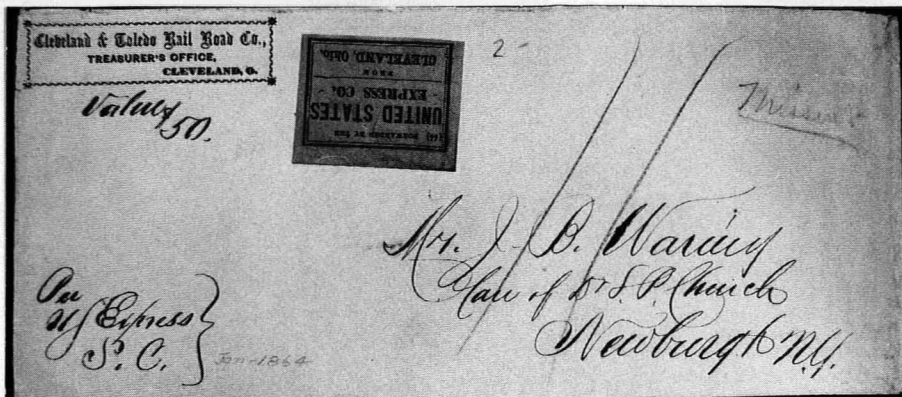 Cleveland & Toledo Rail Road Co.,
TREASURER'S OFFICE,
CLEVELAND, O.
Value $
50.
(44) FORWARDED BY THE
UNITED STATES
- EXPRESS CO. -
FROM
CLEVELAND, Ohio.
2-
Mr. J. B. Waring
Care of Dr S. P. Church
Newburgh N.Y.
Per
U S Express
P. C.
Jan-1864